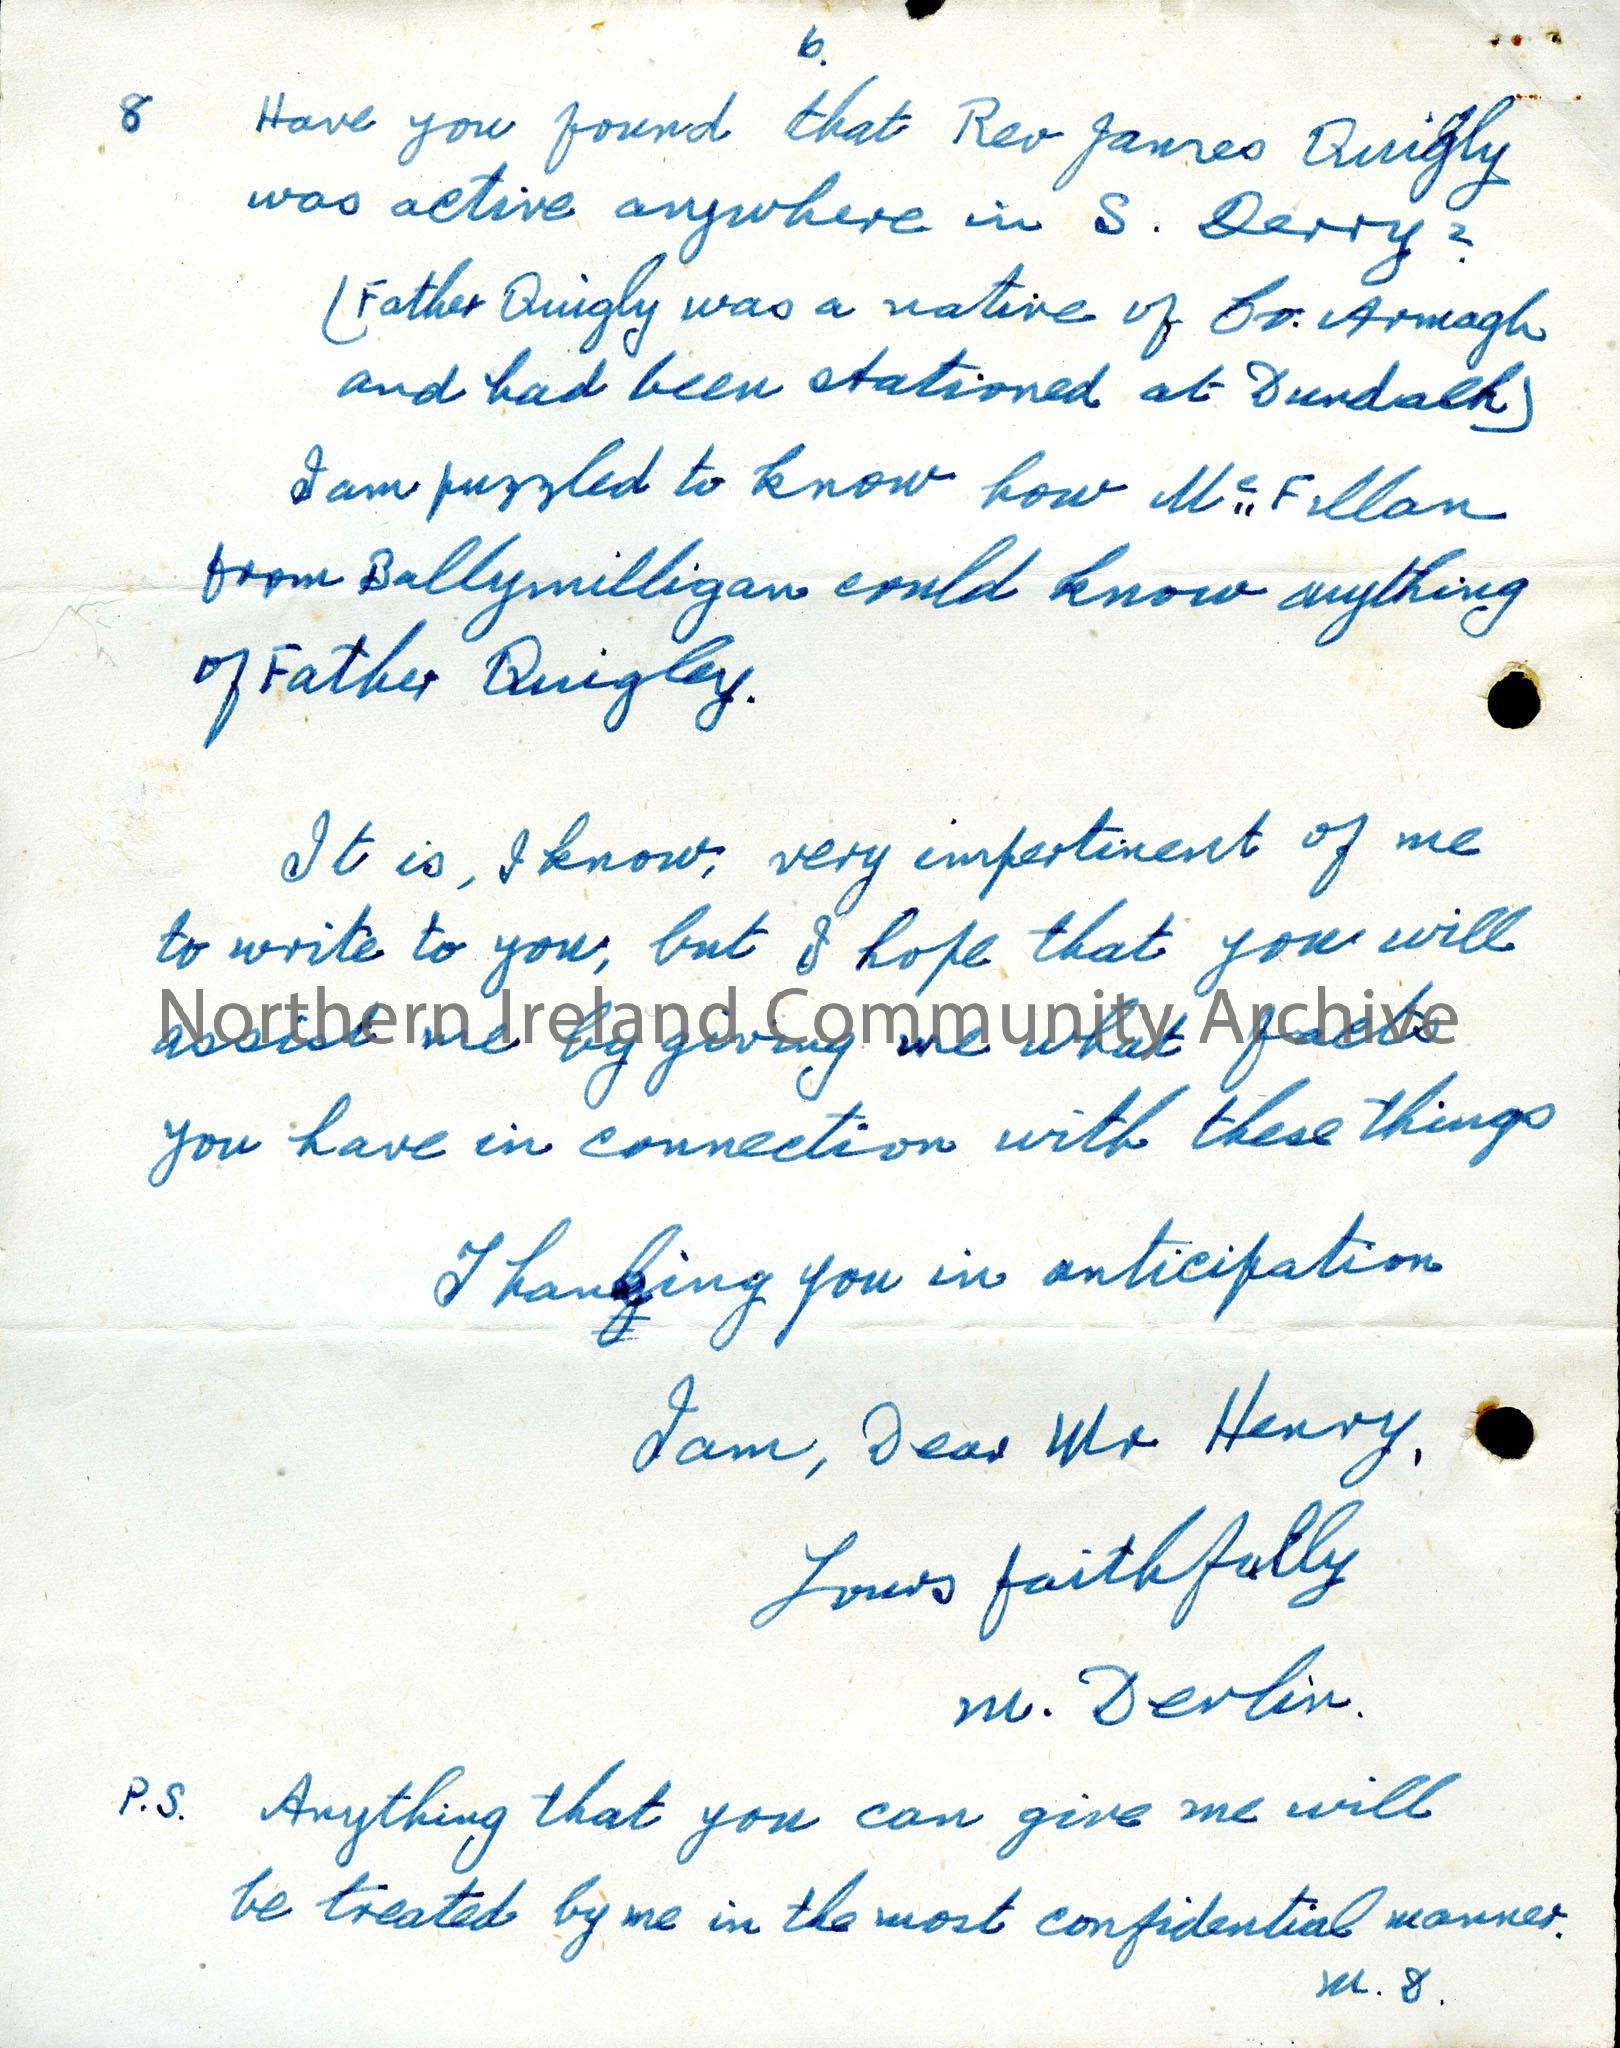 6.
8 Have you found that Rev James Quigly
was active anywhere in S. Derry?
(Father Quigly was a native of Co. Armagh
and had been stationed at Dundalk)
I am puzzled to know how Mc Fillan
from Ballymilligan could know anything
of Father Quigley.
It is, I know, very impertinent of me
to write to you, but I hope that you will
Northern Ireland Community Archive
assist me by giving me what facts
you have in connection with these things
Thanking you in anticipation
I am, Dear Mr Henry,
Yours faithfully
M. Devlin.
P.S. Anything that you can give me will
be treated by me in the most confidential manner.
M. D.